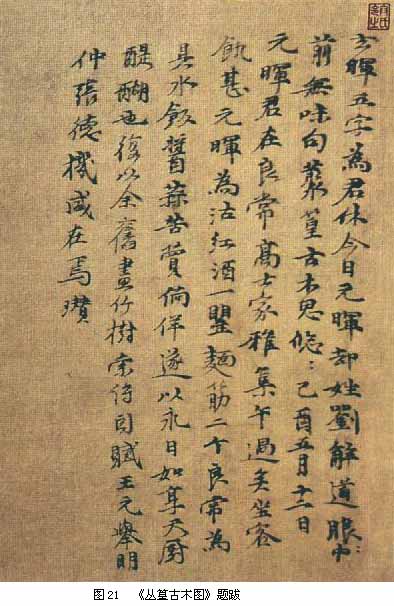 玄暉五字為君休今日元暉却姓劉解道眼中
前無味句叢篁古木思悠〻己酉五月十二日
元暉君在良常高士家雅集午過矣坐客
飢甚元暉為沽紅酒一罌麵筋二个良常為
具水飯醬蒜苦蕒徜徉遂以永日如享天廚
醍醐也復以余舊畫竹樹索詩因賦王元舉明
仲張德機咸在焉瓚
图21 《丛篁古木图》题跋